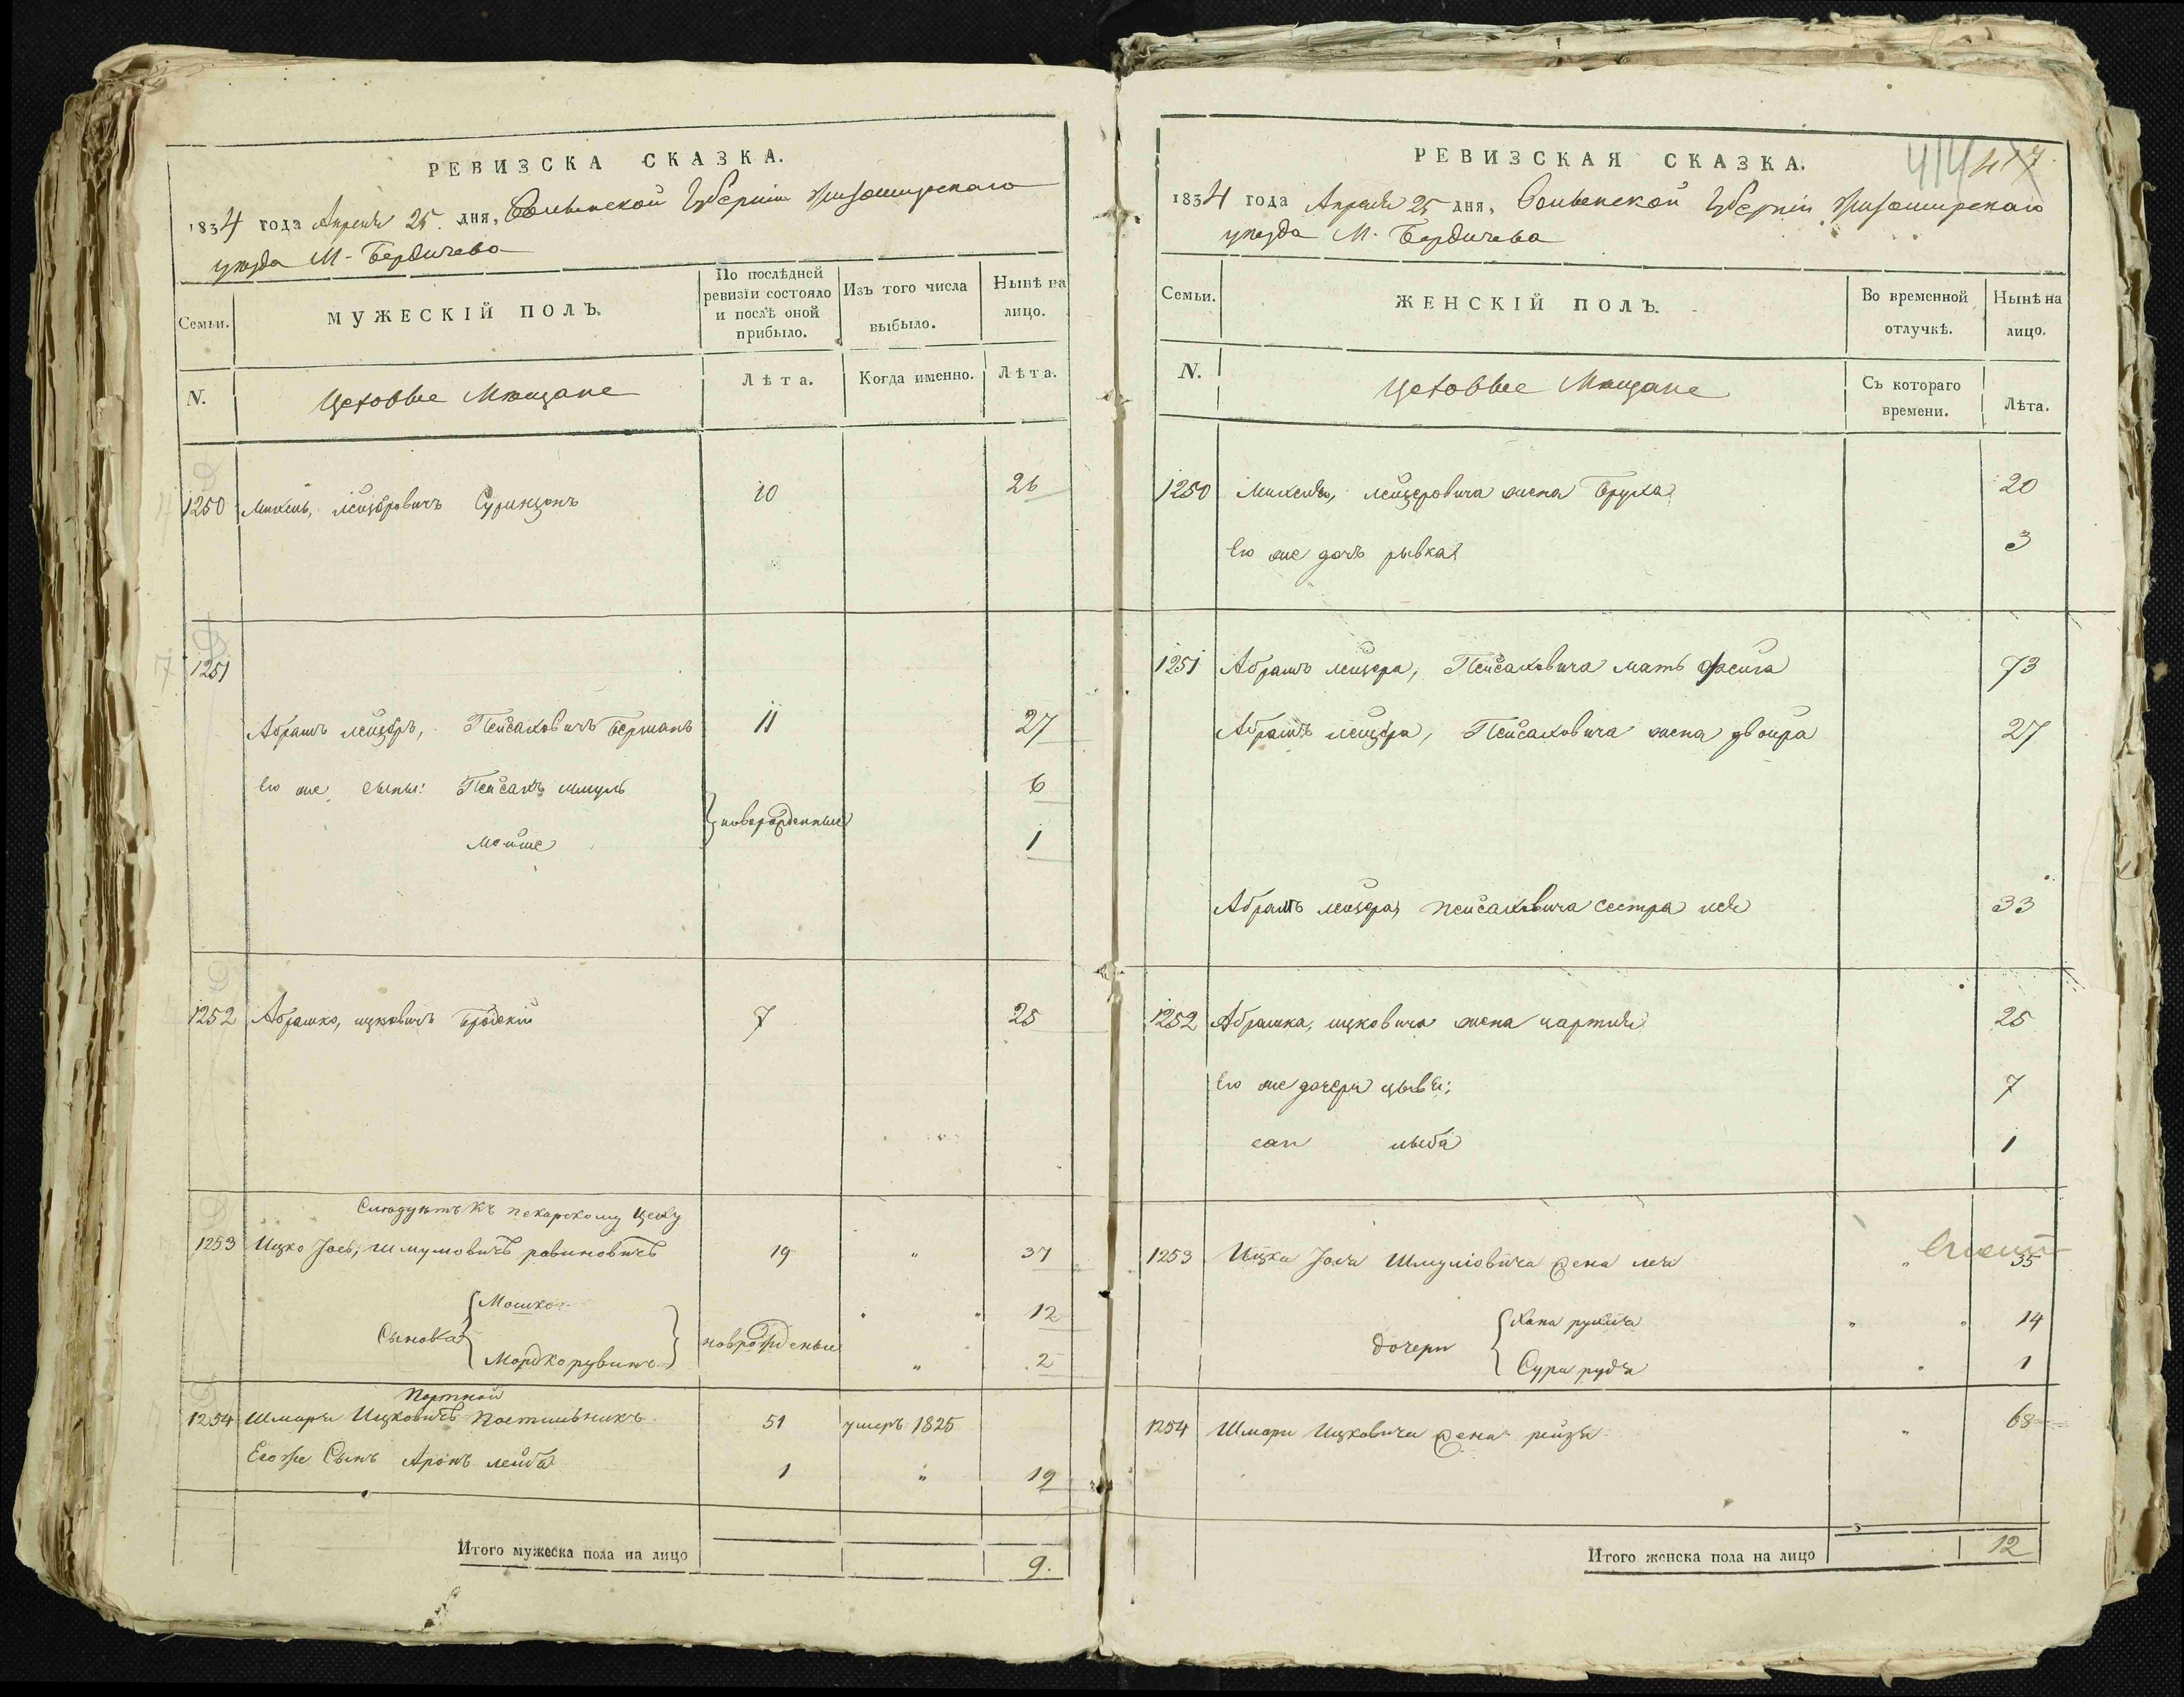 РЕВИЗСКА СКАЗКА.
1834 года Апреля 25. дня, Волынской Губернии Житомирскаго
уезда М. Бердичева
Семьи.
МУЖЕСКІЙ ПОЛЪ.
По послѣдней ревизіи состояло и послѣ оной прибыло.
Изъ того числа выбыло.
Нынѣ на лицо.
N.
Цеховые Мещане
Лѣта.
Когда именно.
Лѣта.
1250 Михель, лейзоровичъ 10 26
1251
Абрамъ лейзоръ, Пейсаховичъ Берманъ 11 27
Его же сыны: Пейсахъ шмуль 6
новорожденные
Мойше 1
1252 Абрамко, ицковичъ Бродскій 7 25
Следуютъ къ пекарскому Цеху
1253 Ицко Іось, шмулиовичъ рабиновичъ 19 " 37
Сыновья
Мошко " " 12
новрожденые
Мордко рувинъ " 2
Портной
1254 Шмари Ицковичъ Постильникъ 51 умеръ 1825
Его же Сынъ Аронъ лейба 1 " 19
Итого мужеска пола на лицо 9.
РЕВИЗСКАЯ СКАЗКА.
414 417
1834 года Апреля 25 дня, Волынской Губерніи Житомирскаго
уезда М. Бердичева
Семьи.
ЖЕНСКІЙ ПОЛЪ.
Во временной отлучкѣ.
Нынѣ на лицо.
N.
Цеховые Мещане
Съ котораго времени.
Лѣта.
1250 Михеля, лейзеровича жена Бруха 20
Его же дочь рывка 3
1251 Абрамъ лейзора, Пейсаховича мать фейга 73
Абрамъ лейзора, Пейсаховича жена двойра 27
Абрамъ лейзора, пейсаховича сестра лея 33
1252 Абрамка, ицковича жена 25
Его же дочери цывья; 7
лыба 1
1253 Ицки Іося Шмулиовича жена лея " 35
дочери
Хана рухля " " 14
Сура рудя " 1
1254 Шмари Ицковича жена рейзя " 68
Итого женска пола на лицо 12